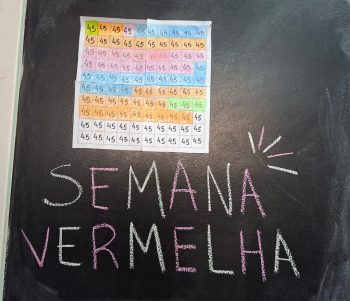 45 45 45 45 45 45 45 45 45 45
45 45 45 45 45 45 45 45 45 45
45 45 45 45 45 45 45 45 45 45
45 45 45 45 45 45 45 45 45 45
45 45 45 45 45 45 45 45 45 45
45 45 45 45 45 45 45 45 45 45
45 45 45 45 45 45 45 45 45 45
45 45 45 45 45 45 45 45 45 45
45 45 45 45 45 45 45 45 45 45
45 45 45 45 45 45 45 45 45 45
SEMANA
VERMELHA